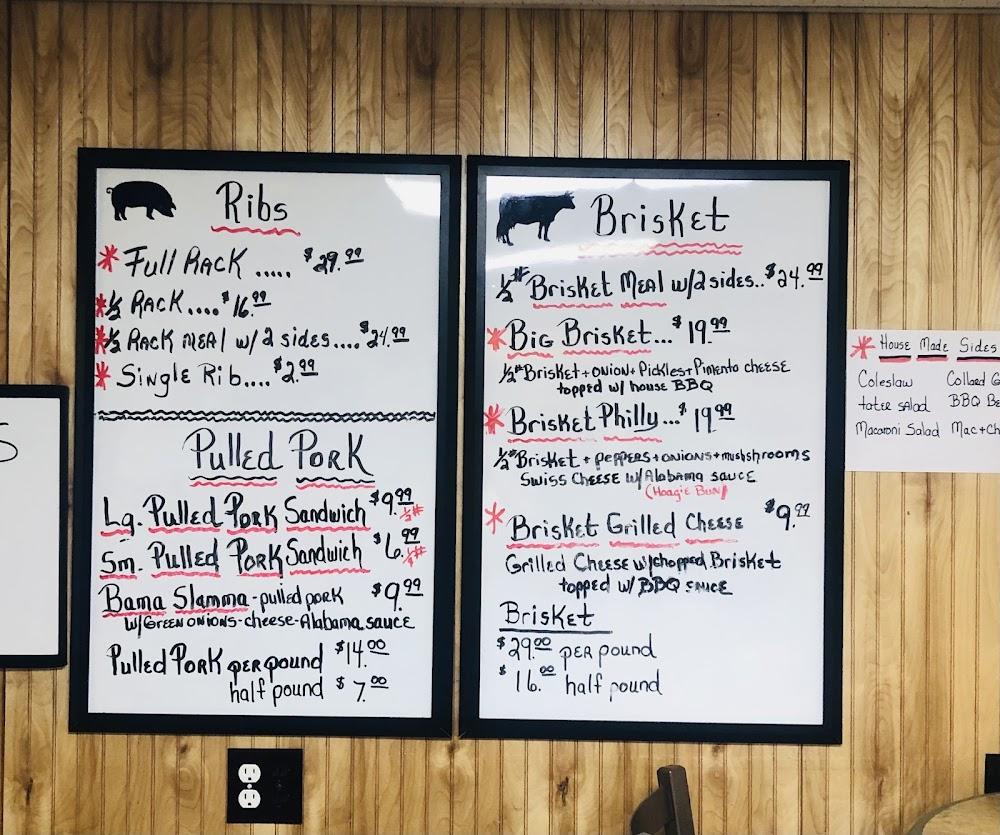 S
Ribs
* Full Rack ..... $29.99
* ½ Rack.... $16.99
* ½ Rack meal w/ 2 sides.... $24.99
* Single Rib.... $2.99
Pulled Pork
Lg. Pulled Pork Sandwich $9.99 ½#
Sm. Pulled Pork Sandwich $6.99 ¼#
Bama Slamma - pulled pork $9.99
w/Green onions-cheese-Alabama sauce
Pulled Pork per pound $14.00
half pound $7.00
Brisket
½# Brisket Meal w/2 sides.. $24.99
* Big Brisket... $19.99
½# Brisket + onion + Pickles + Pimento cheese
topped w/ house BBQ
* Brisket Philly... $19.99
½# Brisket + peppers + onions + mushshrooms
Swiss Cheese w/Alabama sauce
(Hoagie Bun)
* Brisket Grilled Cheese $9.99
Grilled Cheese w/chopped Brisket
topped w/ BBQ sauce
Brisket
$29.00 per pound
$16.00 half pound
* House Made Sides
Coleslaw Collard
tater salad BBQ
Macaroni Salad Mac+